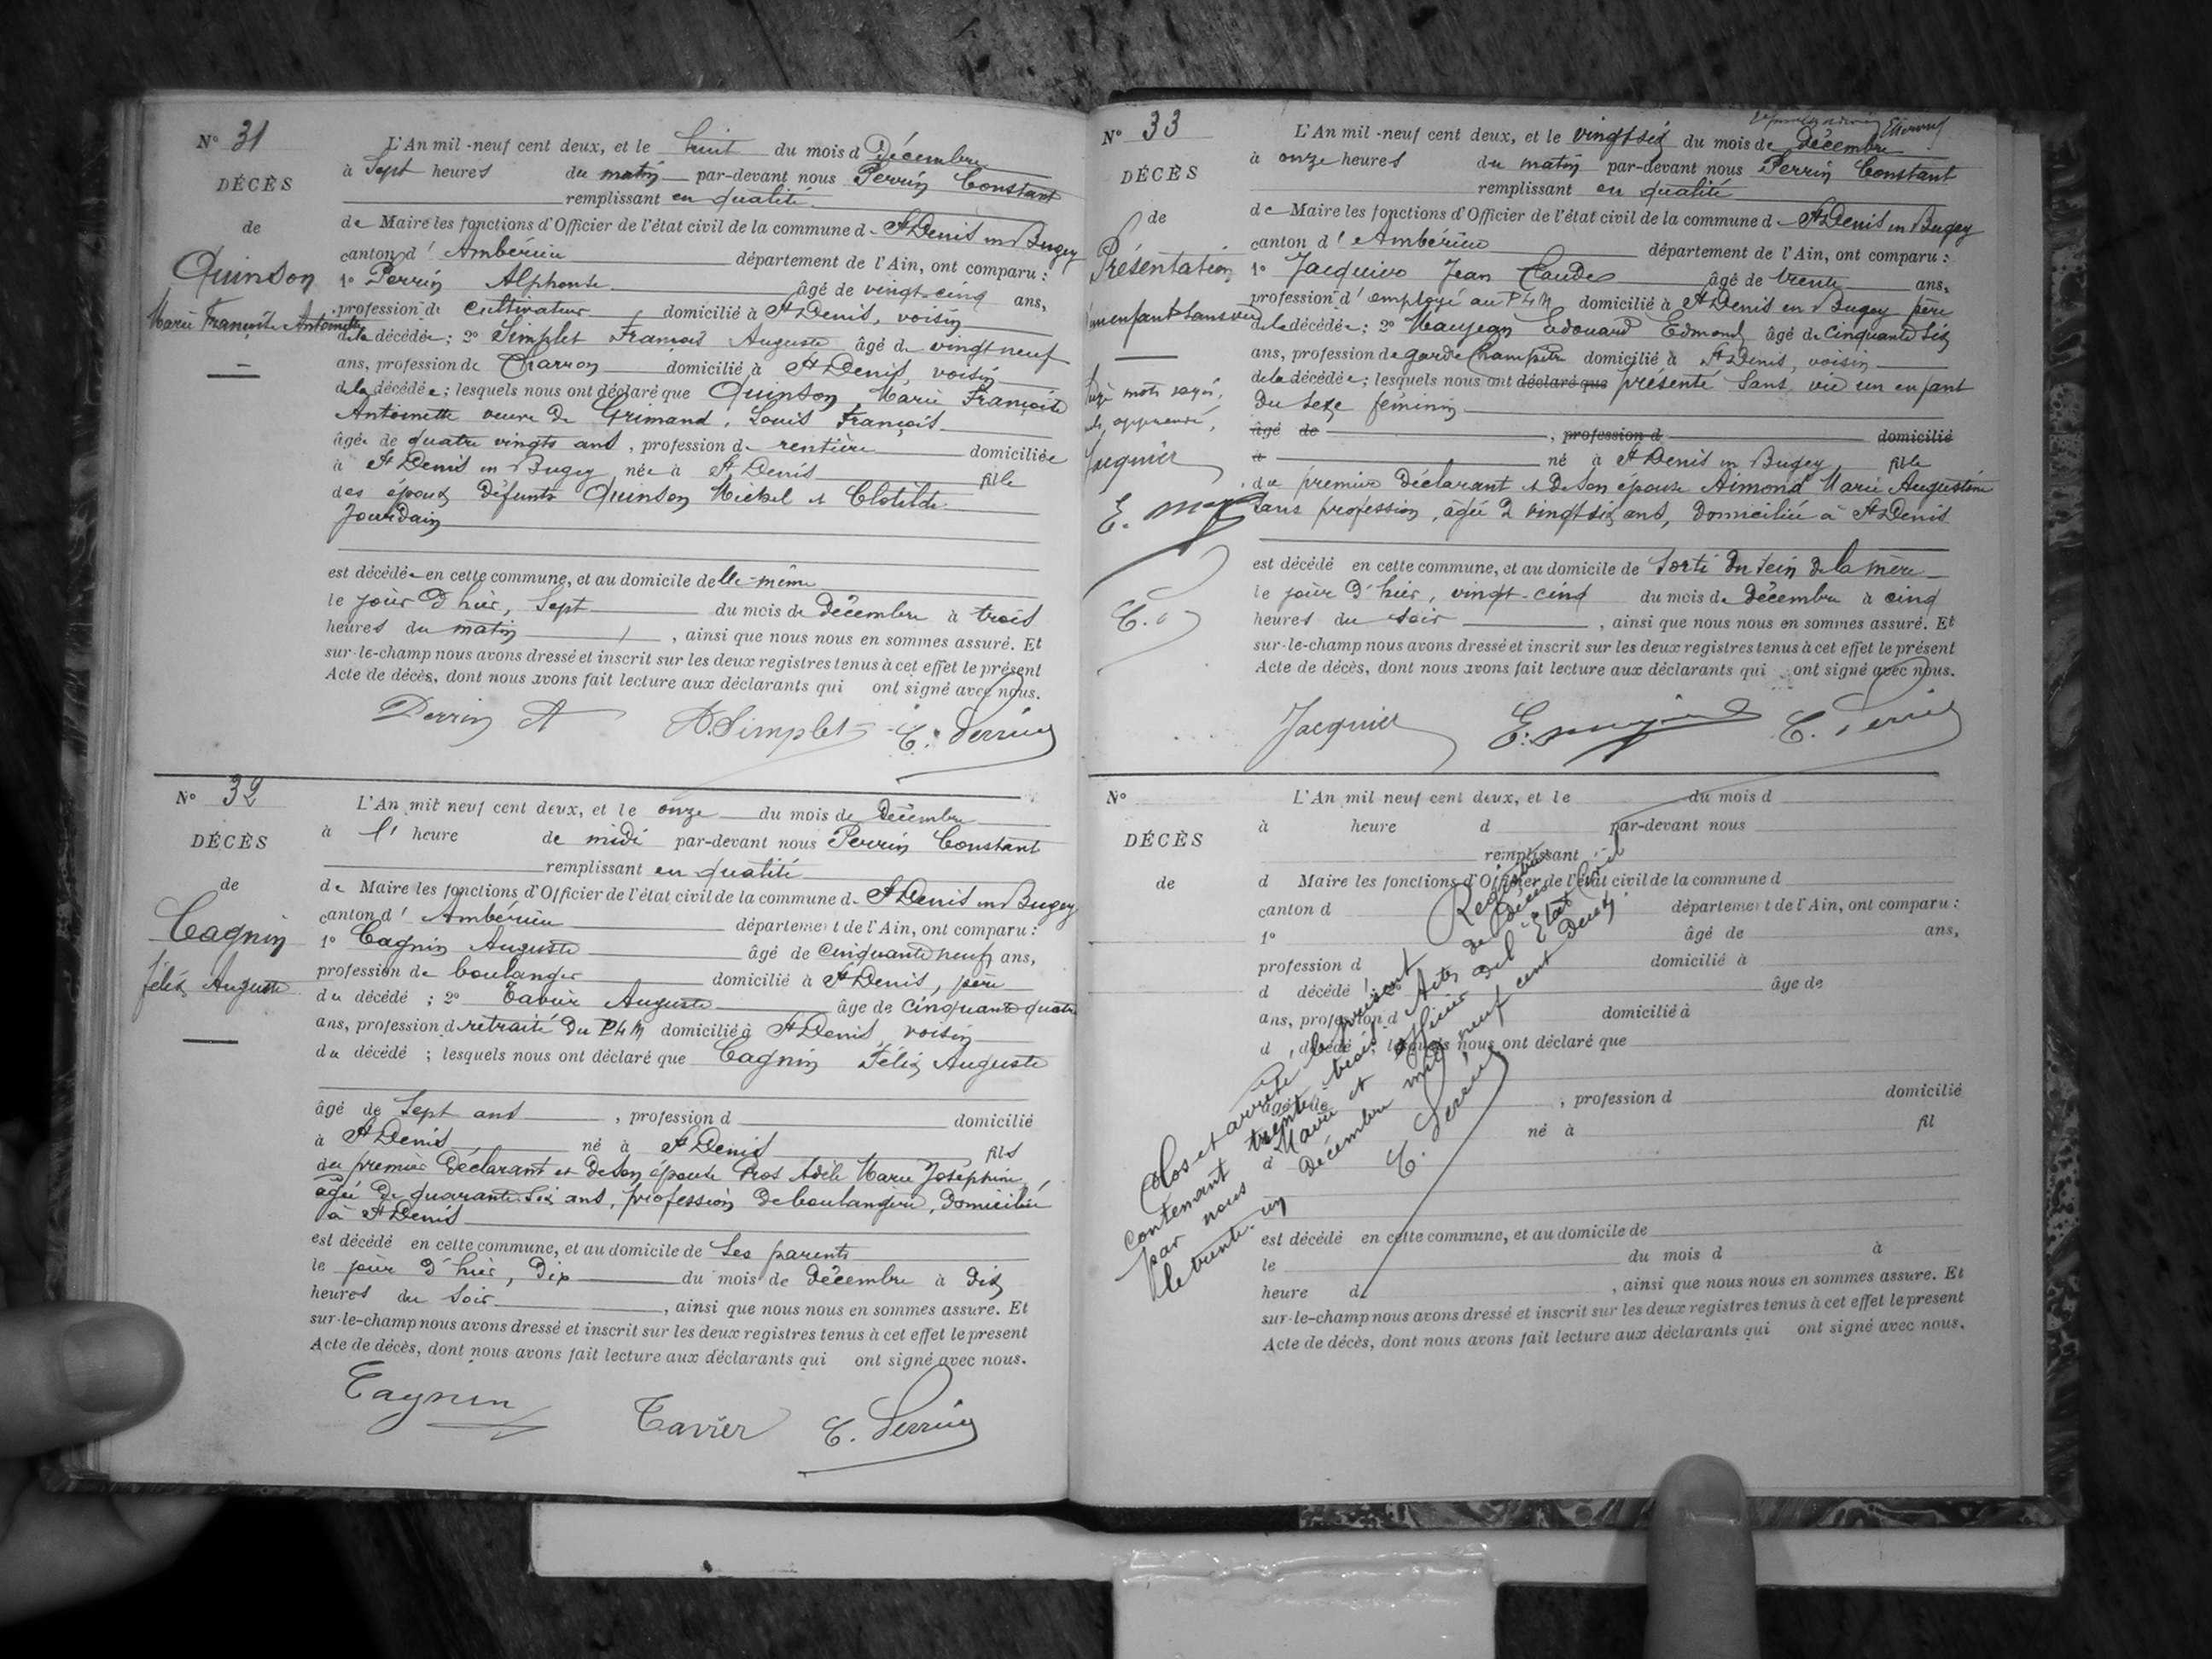 N° 31
DÉCÈS
de
Quinson
Marie Françoise Antoinette
L'An mil-neuf cent deux, et le huit du mois d Décembre
à Sept heures du matin par-devant nous Perrin Constant
remplissant en qualité
de Maire les fonctions d'Officier de l'état civil de la commune d. St Denis en Bugey
canton d' Ambérieu département de l'Ain, ont comparu :
1° Perrin Alphonse âgé de vingt-cinq ans,
profession de cultivateur domicilié à St Denis, voisin
de la décédée ; 2° Simplet François Auguste âgé de vingt neuf
ans, profession de Charron domicilié à St Denis, voisin
de la décédée ; lesquels nous ont déclaré que Quinson, Marie Françoise
Antoinette veuve de Grimand, Louis François
âgée de quatre vingts ans, profession de rentière domiciliée
à St Denis en Bugey née à St Denis fille
des époux défunts Quinson Michel et Clotilde
Jourdain
est décédée en cette commune, et au domicile delle-même
le jour d'hier, Sept du mois de Décembre à trois
heures du matin, ainsi que nous nous en sommes assuré. Et
sur-le-champ nous avons dressé et inscrit sur les deux registres tenus à cet effet le présent
Acte de décès, dont nous avons fait lecture aux déclarants qui ont signé avec nous.
Perrin A A. Simplet C. Perrin
N° 32
DÉCÈS
de
Tagnin
Félix Auguste
L'An mil neuf cent deux, et le onze du mois de Décembre
à l' heure de midi par-devant nous Perrin Constant
remplissant en qualité
de Maire les fonctions d'Officier de l'état civil de la commune d. St Denis en Bugey
canton d' Ambérieu département de l'Ain, ont comparu :
1° Tagnin Auguste âgé de cinquante neuf ans,
profession de boulanger domicilié à St Denis, père
du décédé ; 2° Tavier Auguste âge de cinquante quatre
ans, profession d retraité du PLM domicilié à St Denis, voisin
du décédé ; lesquels nous ont déclaré que Tagnin Félix Auguste
âgé de Sept ans, profession d domicilié
à St Denis né à St Denis fils
du premier déclarant et de son épouse Pros Adèle Marie Joséphine,
âgée de quarante six ans, profession de boulangère, domiciliée
à St Denis
est décédé en cette commune, et au domicile de Ses parents
le jour d'hier, dix du mois de décembre à dix
heures du soir, ainsi que nous nous en sommes assure. Et
sur-le-champ nous avons dressé et inscrit sur les deux registres tenus à cet effet le present
Acte de décès, dont nous avons fait lecture aux déclarants qui ont signé avec nous.
Tagnin Tavier C. Perrin
N° 33
DÉCÈS
de
Présentation
d'un enfant sans vie
mots rayés,
Jacquier
L'An mil-neuf cent deux, et le vingt-six du mois de Décembre
à onze heures du matin par-devant nous Perrin Constant
remplissant en qualité
de Maire les fonctions d'Officier de l'état civil de la commune d. St Denis en Bugey
canton d' Ambérieu département de l'Ain, ont comparu :
1° Jacquier Jean Claude âgé de trente ans,
profession d' employé au PLM domicilié à St Denis en Bugey père
de la décédée ; 2° Maujean Edouard Edmond âgé de cinquante six
ans, profession de garde champêtre domicilié à St Denis, voisin
de la décédée ; lesquels nous ont déclaré que présenté sans vie un enfant
du sexe féminin
âgé de , profession d domicilié
à né à St Denis en Bugey fille
du premier déclarant et de son épouse Aimond Marie Augustine
sans profession, âgée de vingt six ans, domiciliée à St Denis
est décédé en cette commune, et au domicile de Sorti du sein de la mère
le jour d'hier, vingt-cinq du mois de décembre à cinq
heures du soir, ainsi que nous nous en sommes assuré. Et
sur-le-champ nous avons dressé et inscrit sur les deux registres tenus à cet effet le présent
Acte de décès, dont nous avons fait lecture aux déclarants qui ont signé avec nous.
Jacquier C. Perrin
N°
DÉCÈS
de
L'An mil neuf cent deux, et le du mois d
à heure d par-devant nous
remplissant
d Maire les fonctions d'Officier de l'état civil de la commune d
canton d département de l'Ain, ont comparu :
1° âgé de ans,
profession d domicilié à
d décédé ; 2° âge de
ans, profession d domicilié à
d décédé ; lesquels nous ont déclaré que
âgé de , profession d domicilié
né à fil
est décédé en cette commune, et au domicile de
le du mois d à
heure d , ainsi que nous nous en sommes assure. Et
sur-le-champ nous avons dressé et inscrit sur les deux registres tenus à cet effet le present
Acte de décès, dont nous avons fait lecture aux déclarants qui ont signé avec nous.
Clos et arrêté le présent Registre
contenant trente-trois Actes de Décès
par nous Maire et Officier de l'Etat Civil
le trente un décembre mil neuf cent deux.
C. Perrin